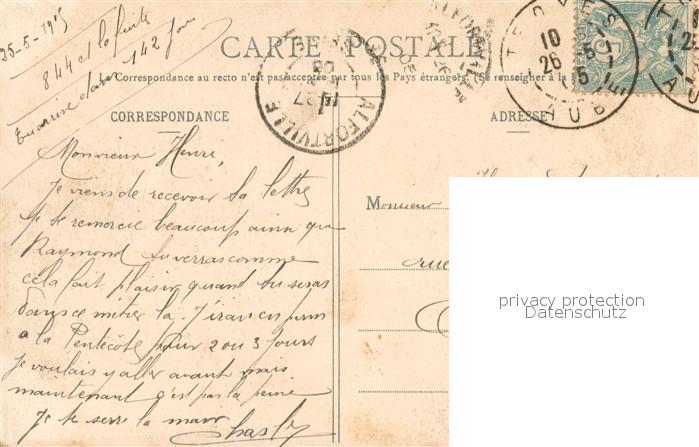 25-5-1905
844 et la fuite
En arrive dans 142 jours
CARTE POSTALE
La Correspondance au recto n'est pas acceptée par tous les Pays étrangers. (Se renseigner à la
CORRESPONDANCE
ADRESSE
ALFORTVILLE
TROYES
AUBE
10
26 5
05
Mon vieux Henri,
Je viens de recevoir ta lettre
je te remercie beaucoup ainsi que
Raymond tu verras comme
cela fait plaisir quand tu seras
dans ce métier la. J'irai en perm
a la Pentecôte pour 2 ou 3 jours
je voulais y aller avant mais
maintenant c'est pas la peine
Je te serre la main
Charles
Monsieur
rue
privacy protection
Datenschutz